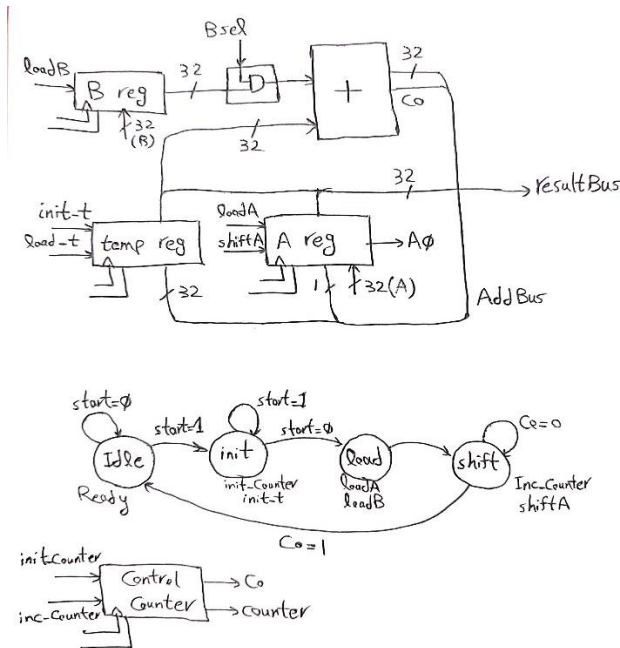 Bsel
loadB
B reg
32
32
(B)
D
+
32
Co
32
32
resultBus
init-t
load-t
temp reg
loadA
shiftA
A reg
AØ
32
1
32(A)
AddBus
start=Ø
start=1
start=1
start=Ø
Co=0
Idle
init
load
shift
Ready
init-Counter
init-t
loadA
loadB
Inc-Counter
shiftA
Co=1
init-Counter
inc-Counter
Control
Counter
Co
counter